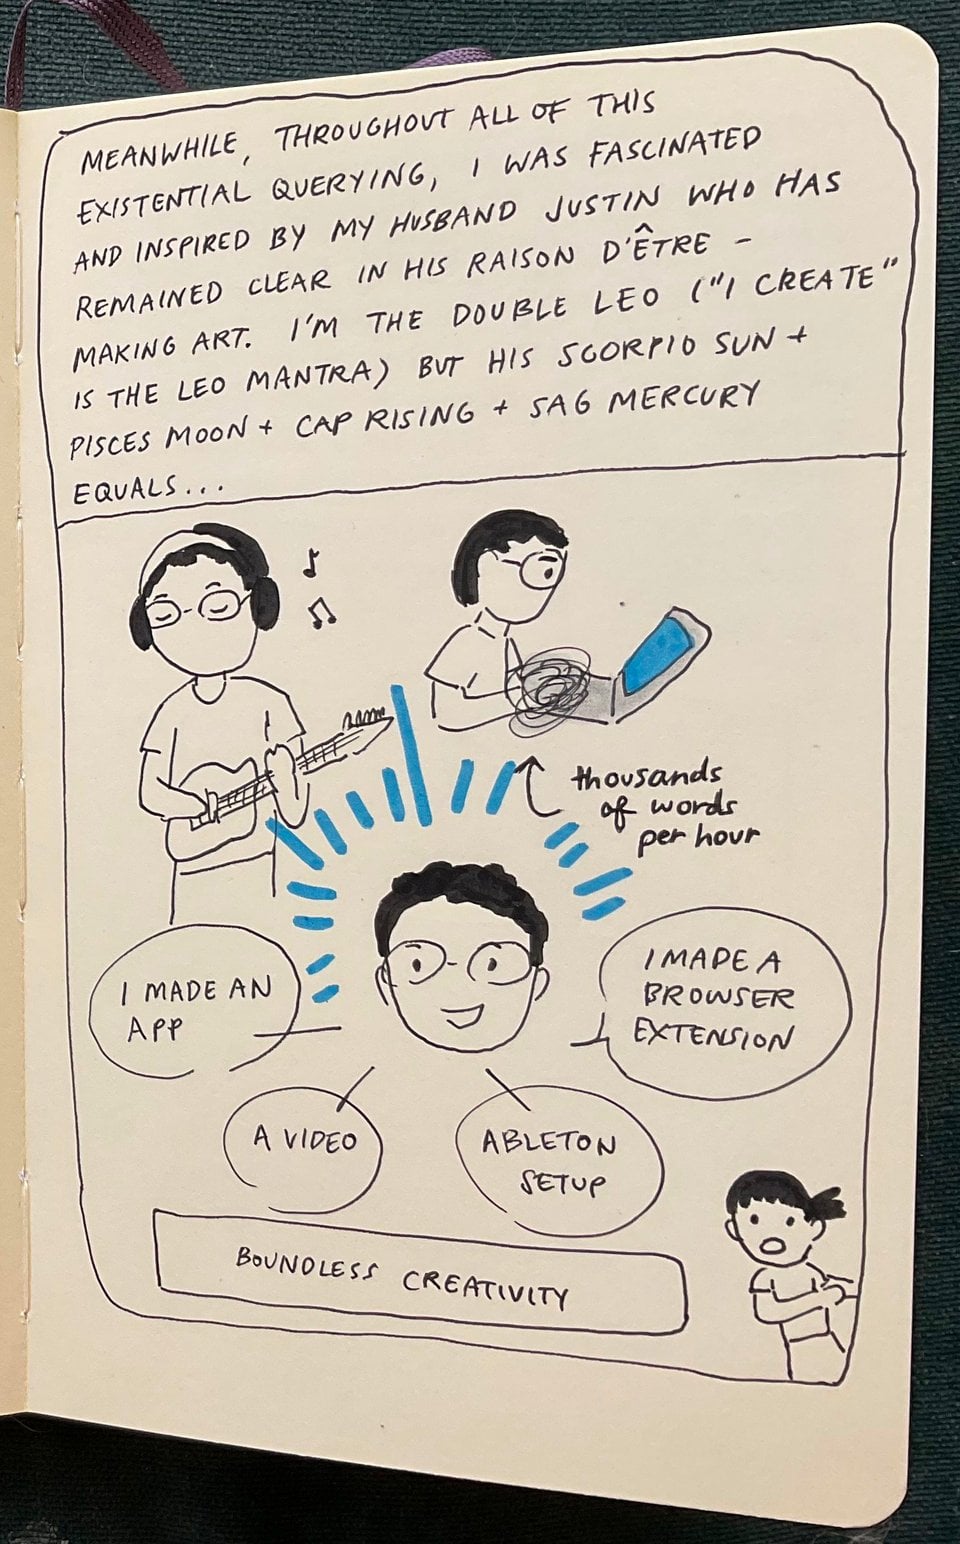 MEANWHILE, THROUGHOUT ALL OF THIS
EXISTENTIAL QUERYING, I WAS FASCINATED
AND INSPIRED BY MY HUSBAND JUSTIN WHO HAS
REMAINED CLEAR IN HIS RAISON D'ÊTRE –
MAKING ART. I'M THE DOUBLE LEO ("I CREATE"
IS THE LEO MANTRA) BUT HIS SCORPIO SUN +
PISCES MOON + CAP RISING + SAG MERCURY
EQUALS...
thousands
of words
per hour
I MADE AN
APP
I MADE A
BROWSER
EXTENSION
A VIDEO
ABLETON
SETUP
BOUNDLESS CREATIVITY